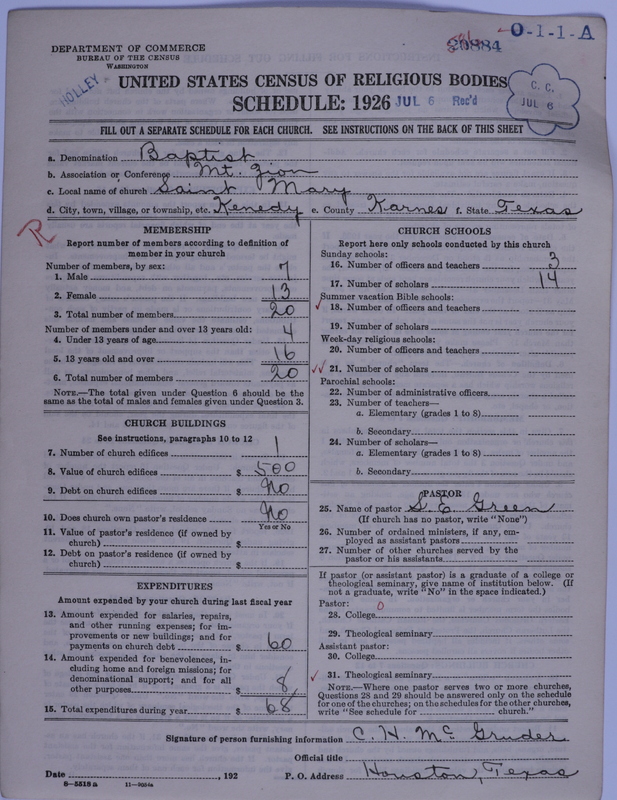 O-1-1-A
20884
DEPARTMENT OF COMMERCE
BUREAU OF THE CENSUS
WASHINGTON
HOLLEY
UNITED STATES CENSUS OF RELIGIOUS BODIES
SCHEDULE: 1926 JUL 6 Rec'd
C. C.
JUL 6
FILL OUT A SEPARATE SCHEDULE FOR EACH CHURCH. SEE INSTRUCTIONS ON THE BACK OF THIS SHEET
a. Denomination Baptist
b. Association or Conference Mt. Zion
c. Local name of church Saint Mary
d. City, town, village, or township, etc. Kenedy e. County Karnes f. State Texas
R
MEMBERSHIP
Report number of members according to definition of
member in your church
Number of members, by sex:
1. Male 7
2. Female 13
3. Total number of members 20
Number of members under and over 13 years old:
4. Under 13 years of age 4
5. 13 years old and over 16
6. Total number of members 20
NOTE.—The total given under Question 6 should be
same as the total of males and females given under Question 3.
CHURCH BUILDINGS
See instructions, paragraphs 10 to 12
7. Number of church edifices 1
8. Value of church edifices $ 500
9. Debt on church edifices $ No
10. Does church own pastor's residence No
Yes or No
11. Value of pastor's residence (if owned by
church) $
12. Debt on pastor's residence (if owned by
church) $
EXPENDITURES
Amount expended by your church during last fiscal year
13. Amount expended for salaries, repairs,
and other running expenses; for im-
provements or new buildings; and for
payments on church debt $ 60
14. Amount expended for benevolences, in-
cluding home and foreign missions; for
denominational support; and for all
other purposes $ 8
15. Total expenditures during year $ 68
CHURCH SCHOOLS
Report here only schools conducted by this church
Sunday schools:
16. Number of officers and teachers 3
17. Number of scholars 14
Summer vacation Bible schools:
18. Number of officers and teachers
19. Number of scholars
Week-day religious schools:
20. Number of officers and teachers
21. Number of scholars
Parochial schools:
22. Number of administrative officers
23. Number of teachers—
a. Elementary (grades 1 to 8)
b. Secondary
24. Number of scholars—
a. Elementary (grades 1 to 8)
b. Secondary
PASTOR
25. Name of pastor S. E. Green
(If church has no pastor, write "None")
26. Number of ordained ministers, if any, em-
ployed as assistant pastors
27. Number of other churches served by the
pastor or his assistants
If pastor (or assistant pastor) is a graduate of a college or
theological seminary, give name of institution below. (If
not a graduate, write "No" in the space indicated.)
Pastor: 0
28. College
29. Theological seminary
Assistant pastor:
30. College
31. Theological seminary
NOTE.—Where one pastor serves two or more churches,
Questions 28 and 29 should be answered only on the schedule
for one of the churches; on the schedules for the other churches,
write "See schedule for church."
Signature of person furnishing information C. H. McGruder
Official title
Date , 192 P. O. Address Houston, Texas
8-5518 a